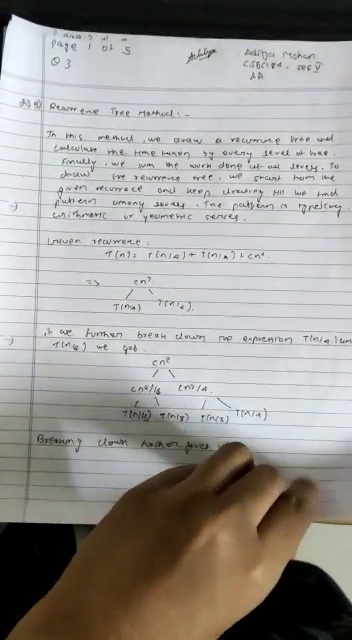 Page 1 of 5
Aditya Mohan
Q 3
CSE V
Recurrence Tree Method : -
In this method, we draw a recurrence tree and
calculate the time taken by every level of tree.
Finally, we sum the work done at all levels. To
draw the recurrence tree, we start from the
given recurrence and keep drawing till we find
pattern among levels. The pattern is typically
arithmetic or geometric series.
Given recurrence:
T(n) = T(n/4) + T(n/2) + cn²
=> cn²
T(n/4) T(n/2).
If we further break down the expression T(n/4) and
T(n/2) we get.
cn²
cn²/16 cn²/4
T(n/16) T(n/8) T(n/8) T(n/4)
Breaking down further gives